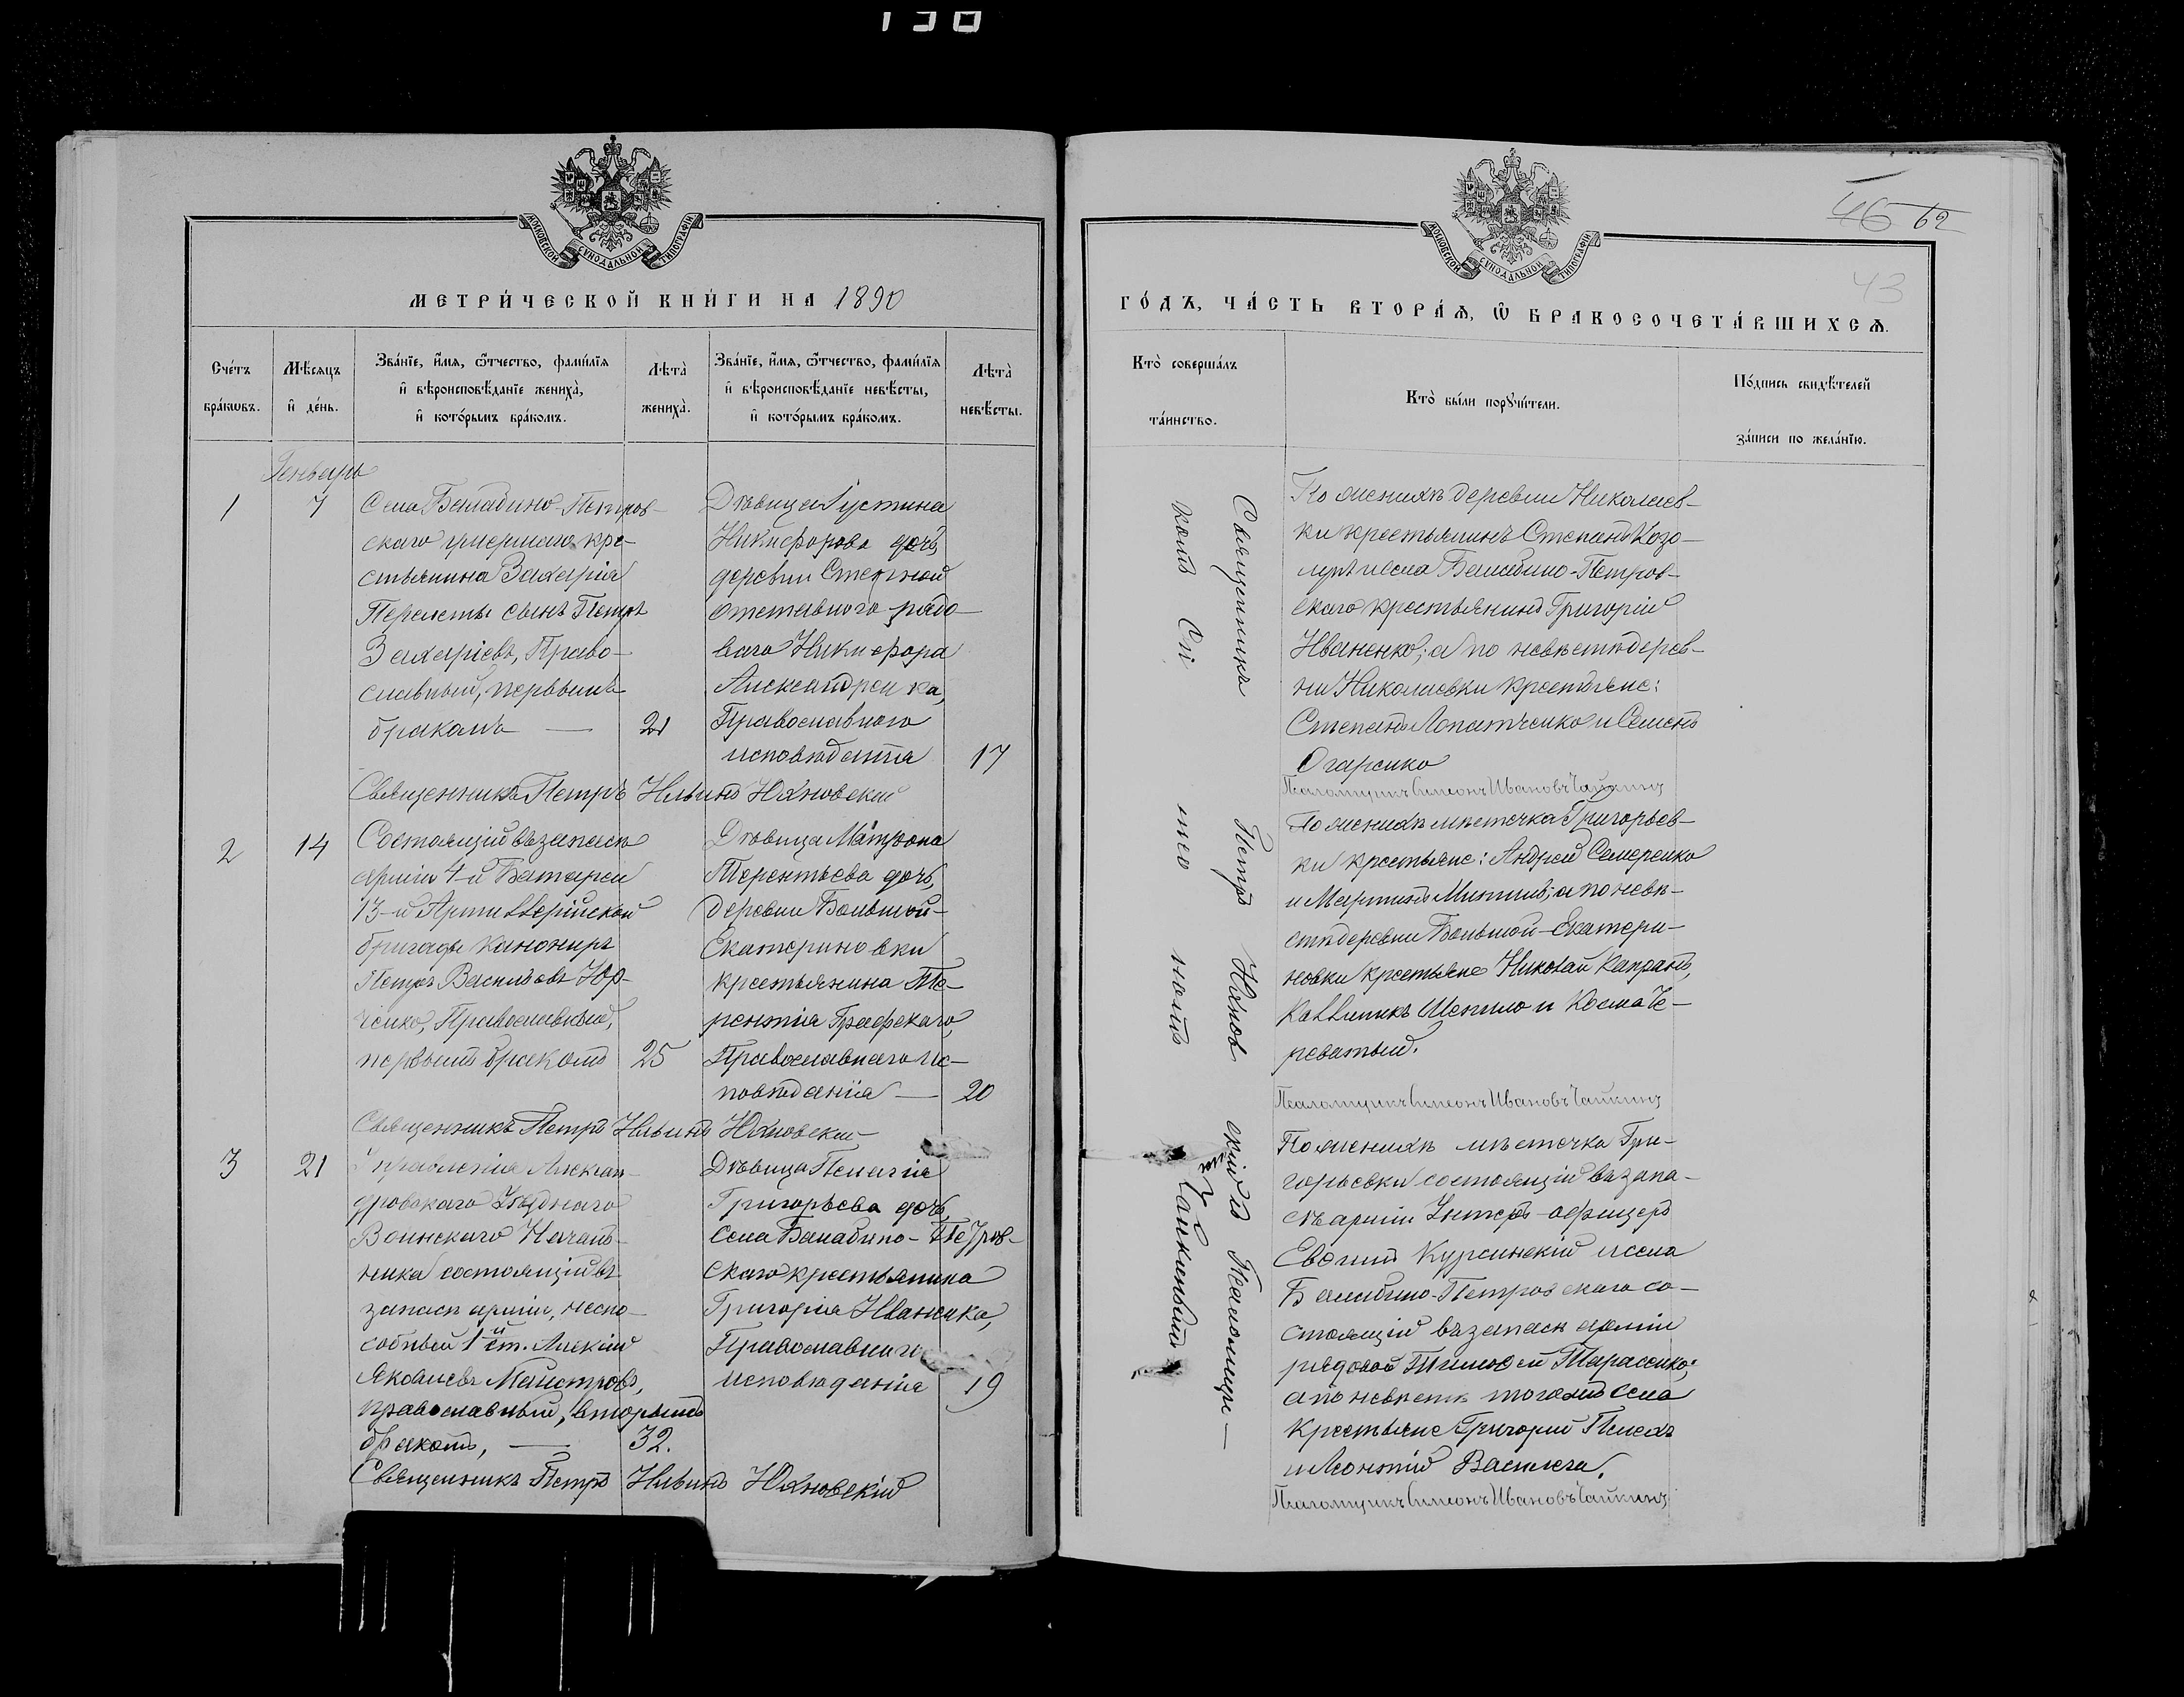 130
МОСКОВСКОЙ СѴНОДАЛЬНОЙ ТИПОГРАФІИ
МЕТРИ́ЧЕСКОЙ КНИ́ГИ НА 1890
Сче́тъ бра́кωвъ.
Мѣ́сяцъ и҆ де́нь.
Зва́нїе, и҆́мѧ, ѻ҆́тчество, фами́лїѧ
и҆ вѣроисповѣ́данїе жениха̀,
и҆ кото́рымъ бра́комъ.
Лѣта̀ жениха̀.
Зва́нїе, и҆́мѧ, ѻ҆́тчество, фами́лїѧ
и҆ вѣроисповѣ́данїе невѣ́сты,
и҆ кото́рымъ бра́комъ.
Лѣта̀ невѣ́сты.
Генварь
1
7
Села Балабино-Петров-
скаго умершаго кре-
стьянина Захарія
Перемоты сынъ Петръ
Захаріевъ, Право-
славный, первымъ
бракомъ —
21
Дѣвица Іустина
Никифорова дочь,
деревни Степной
отставного рядо-
ваго Никифора
Александренка,
Православнаго
исповѣданія
17
Священникъ Петръ Ильинъ Юхновскій
2
14
Состоящій въ запасѣ
арміи 4-й Батареи
13-й Артиллерійской
бригады канониръ
Петръ Васильевъ Юр-
ченко, Православный,
первымъ бракомъ
25
Дѣвица Матрона
Терентьева дочь,
деревни Большой-
Екатериновки
крестьянина Те-
рентія Графскаго,
Православнаго ис-
повѣданія —
20
Священникъ Петръ Ильинъ Юхновскій
3
21
Управленія Алексан-
дровскаго Уѣзднаго
Воинскаго Началь-
ника состоящій въ
запасѣ арміи, неспо-
собный 1й ст. Алексій
Яковлевъ Майстровъ,
православный, вторымъ
бракомъ, —
32.
Дѣвица Пелагія
Григорьева дочь,
Села Балабино-Петров-
скаго крестьянина
Григорія Иваненка,
Православнаго
исповѣданія
19
Священникъ Петръ Ильинъ Юхновскій
46 62
43
МОСКОВСКОЙ СѴНОДАЛЬНОЙ ТИПОГРАФІИ
ГО́ДЪ, ЧА́СТЬ ВТОРА́Ѧ, Ѽ БРАКОСОЧЕТА́ВШИХСѦ.
Кто̀ соверша́лъ
та́инство.
Кто̀ бы́ли порꙋчи́тели.
По́дпись свидѣ́телей
за́писи по жела́нїю.
Священникъ Петръ Юхновскій съ Псаломщи-
комъ Симеономъ Чайкинымъ
По женихѣ деревни Николаев-
ки крестьянинъ Степанъ Козо-
и села Балабино-Петров-
скаго крестьянинъ Григорій
Иваненко; а по невѣстѣ дерев-
ни Николаевки крестьяне:
Степанъ Лопатченко и Семенъ
Огаренко
Псаломщикъ Симеонъ Ивановъ Чайкинъ
По женихѣ мѣстечка Григорьев-
ки крестьяне: Андрей Семеренко
и Мартинъ а по невѣ-
стѣ деревни Большой-Екатери-
новки крестьяне Николай Капранъ,
Каллиникъ Шепило и Косма Че-
реватый.
Псаломщикъ Симеонъ Ивановъ Чайкинъ
По женихѣ мѣстечка Гри-
горьевки состоящій въ запа-
сѣ арміи Унтеръ-офицеръ
Евфимій Курсинскій и села
Балабино-Петровскаго со-
стоящій въ запасѣ арміи
рядовой Тимофей Тарасенко;
а по невѣстѣ того же села
крестьяне Григорій Пелехъ
и Леонтій Васильега.
Псаломщикъ Симеонъ Ивановъ Чайкинъ